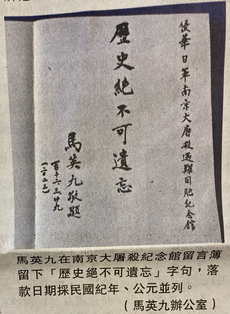 侵華日軍南京大屠殺遇難同胞紀念館
歷史絕不可遺忘
馬英九敬題
馬英九在南京大屠殺紀念館留言簿
留下「歷史絕不可遺忘」字句，落
款日期採民國紀年、公元並列。
（馬英九辦公室）